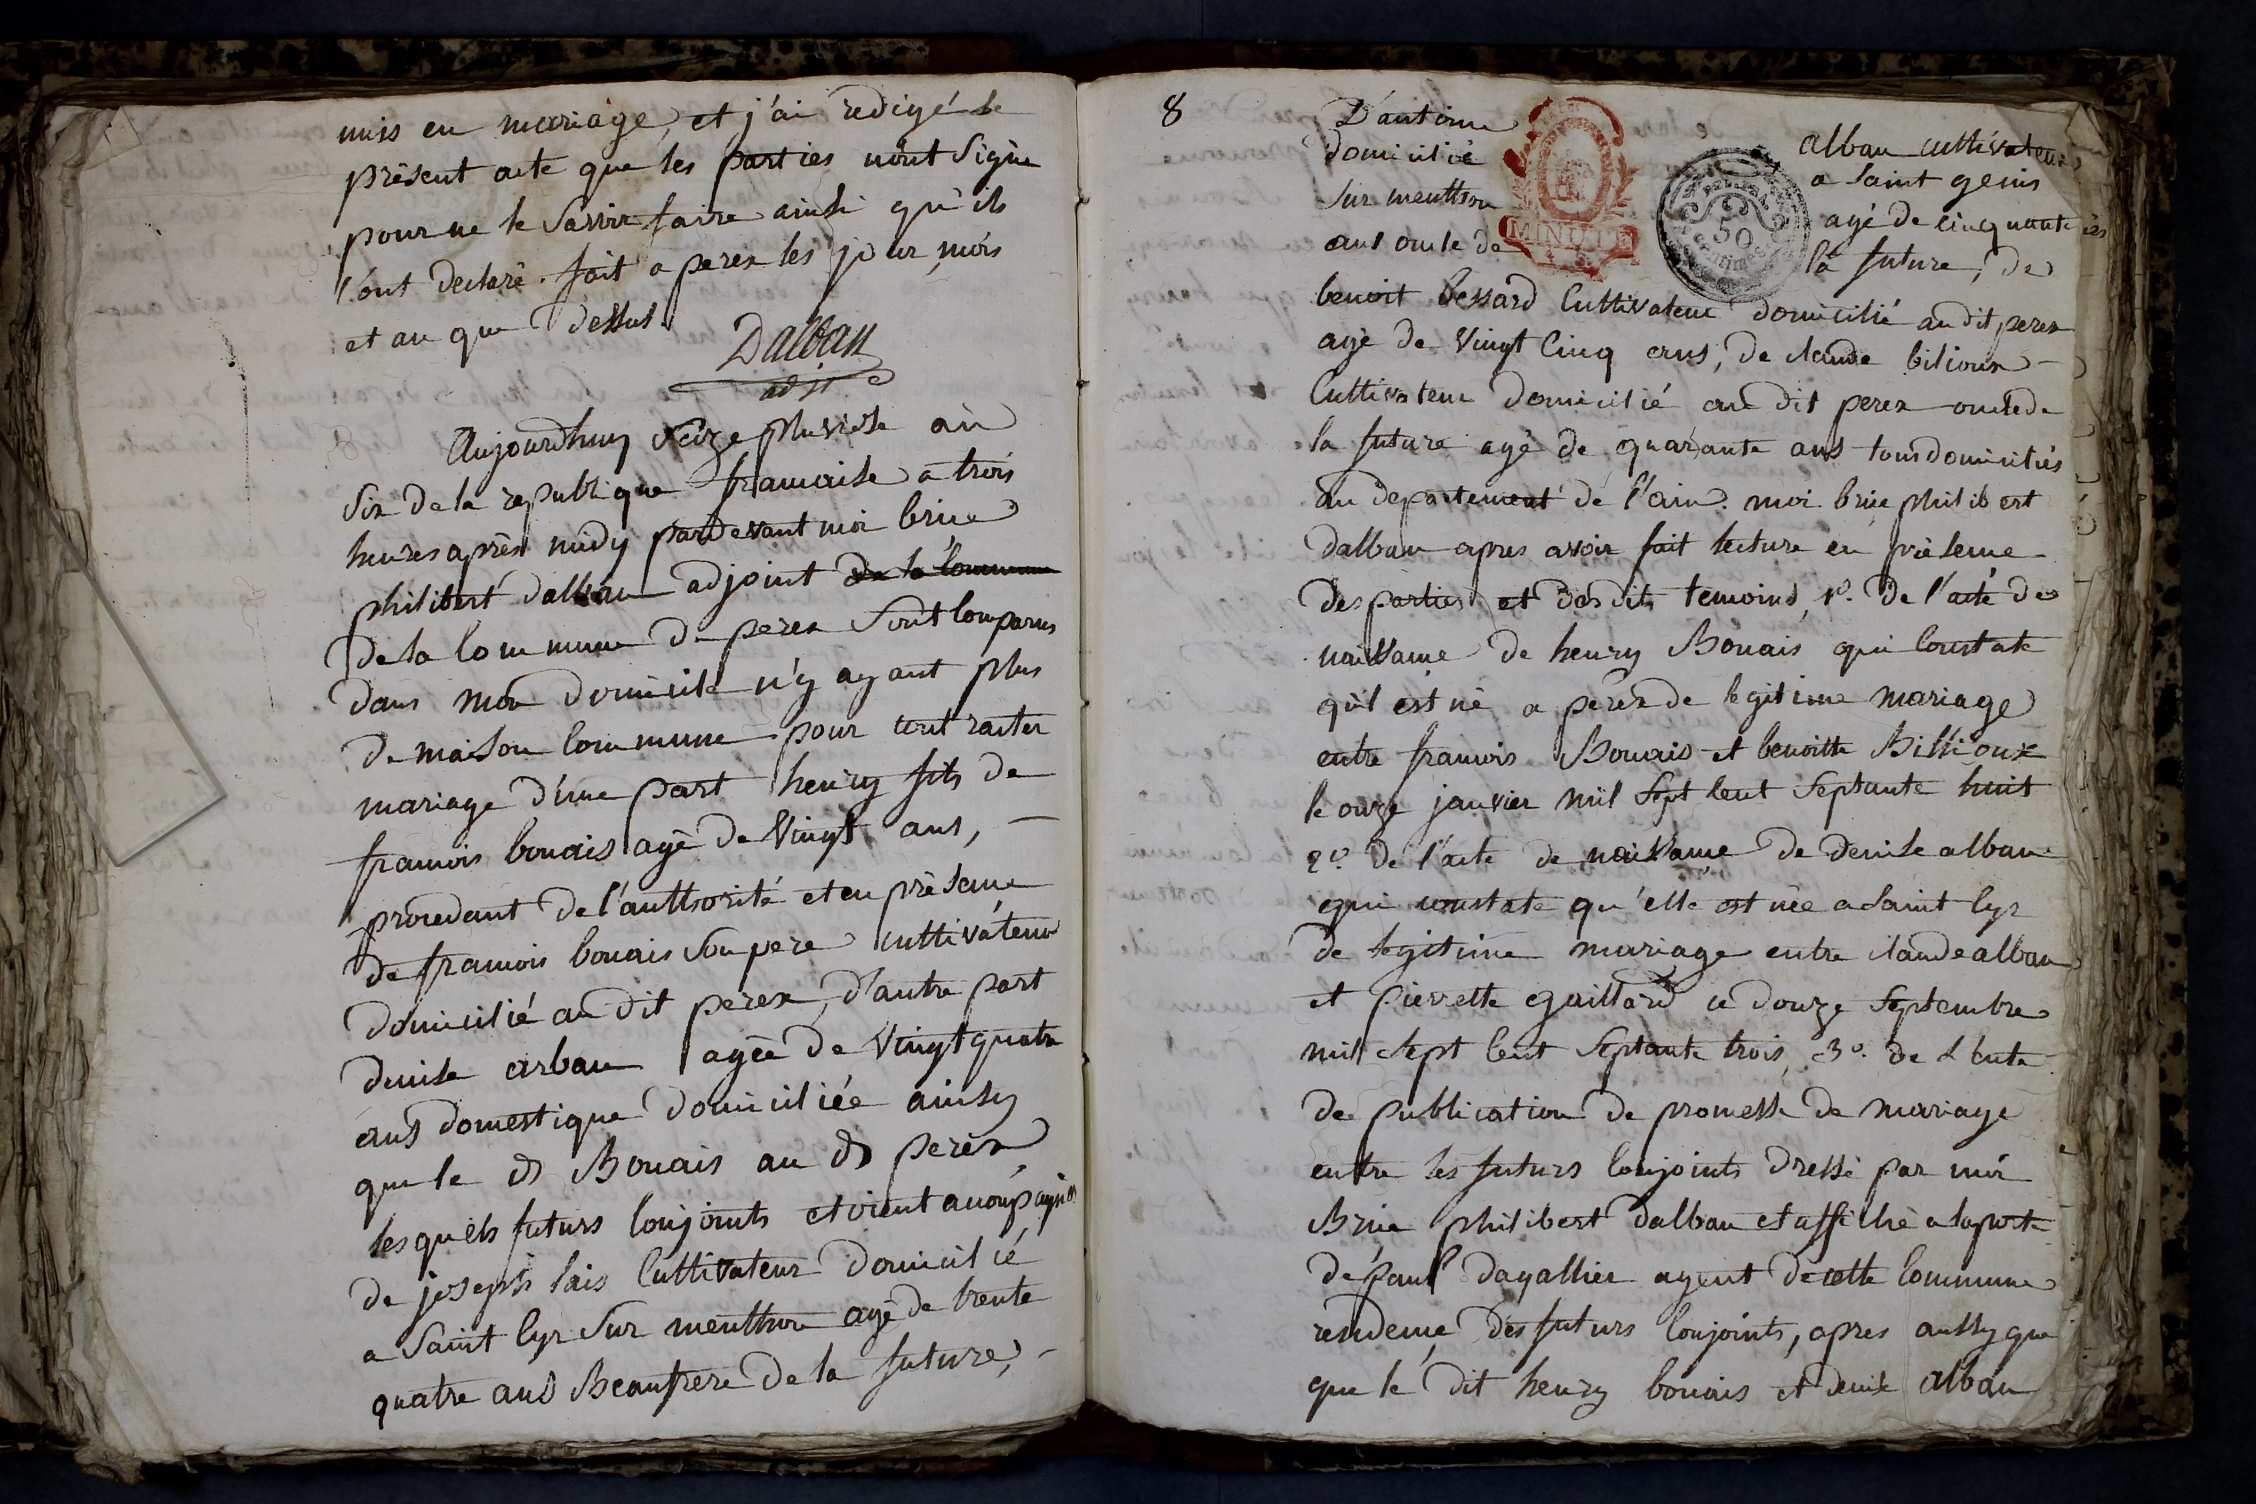 unis en mariage, et j'ai redigé le
présent acte que les parties n'ont signé
pour ne le savoir faire ainsi qu'ils
l'ont declaré. fait a perex les jour, mois
et an que dessus.
Dalban
adjt
Aujourdhuy seize pluviose an
six de la republique francaise a trois
heures après midy pardevant moi brice
philibert dalban adjoint de la commune
de la commune de perex sont comparus
dans mon domicile n'y ayant plus
de maison commune pour contracter
mariage d'une part henry fils de
francois bonais agé de vingt ans,
procedant de l'authorité et en présence
de francois bonais son pere cultivateur
domicilié au dit perex, d'autre part
denise arban agée de vingt quatre
ans domestique domiciliée ainsy
que le dt Bonais au dt perex
lesquels futurs conjoints etoient accompagnés
de joseph lais cultivateur domicilié
a saint cyr sur menthon agé de trente
quatre ans Beaufrere de la future,
8
D'antoine alban cultivateur
domicilié a saint genis
sur menthon agé de cinquante six
ans oncle de la future, de
MINUTE
50
centimes
benoit bessard cultivateur domicilié au dit perex
agé de vingt cinq ans, de claude bilioux
cultivateur domicilié au dit perex oncle de
la future agé de quarante ans tous domiciliés
au departement de l'ain. moi brice philibert
dalban apres avoir fait lecture en présence
des parties et des dits temoins, 1o. de l'acte de
naissance de henry Bonais qui constate
qu'il est né a perex de legitime mariage
entre francois Bonais et benoitte Billioux
le onze janvier mil sept cent septante huit
2o. de l'acte de naissance de denise alban
qui constate qu'elle est née a saint cyr
de legitime mariage entre claude alban
et pierrette gaillard ce douze septembre
mil sept cent septante trois, 3o. de l'acte
de publication de promesse de mariage
entre les futurs conjoints dressé par moi
Brice philibert dalban et affiché a la porte
de paul dagallier agent de cette commune
residence des futurs conjoints, apres aussy que
que le dit henry bonais et denise alban